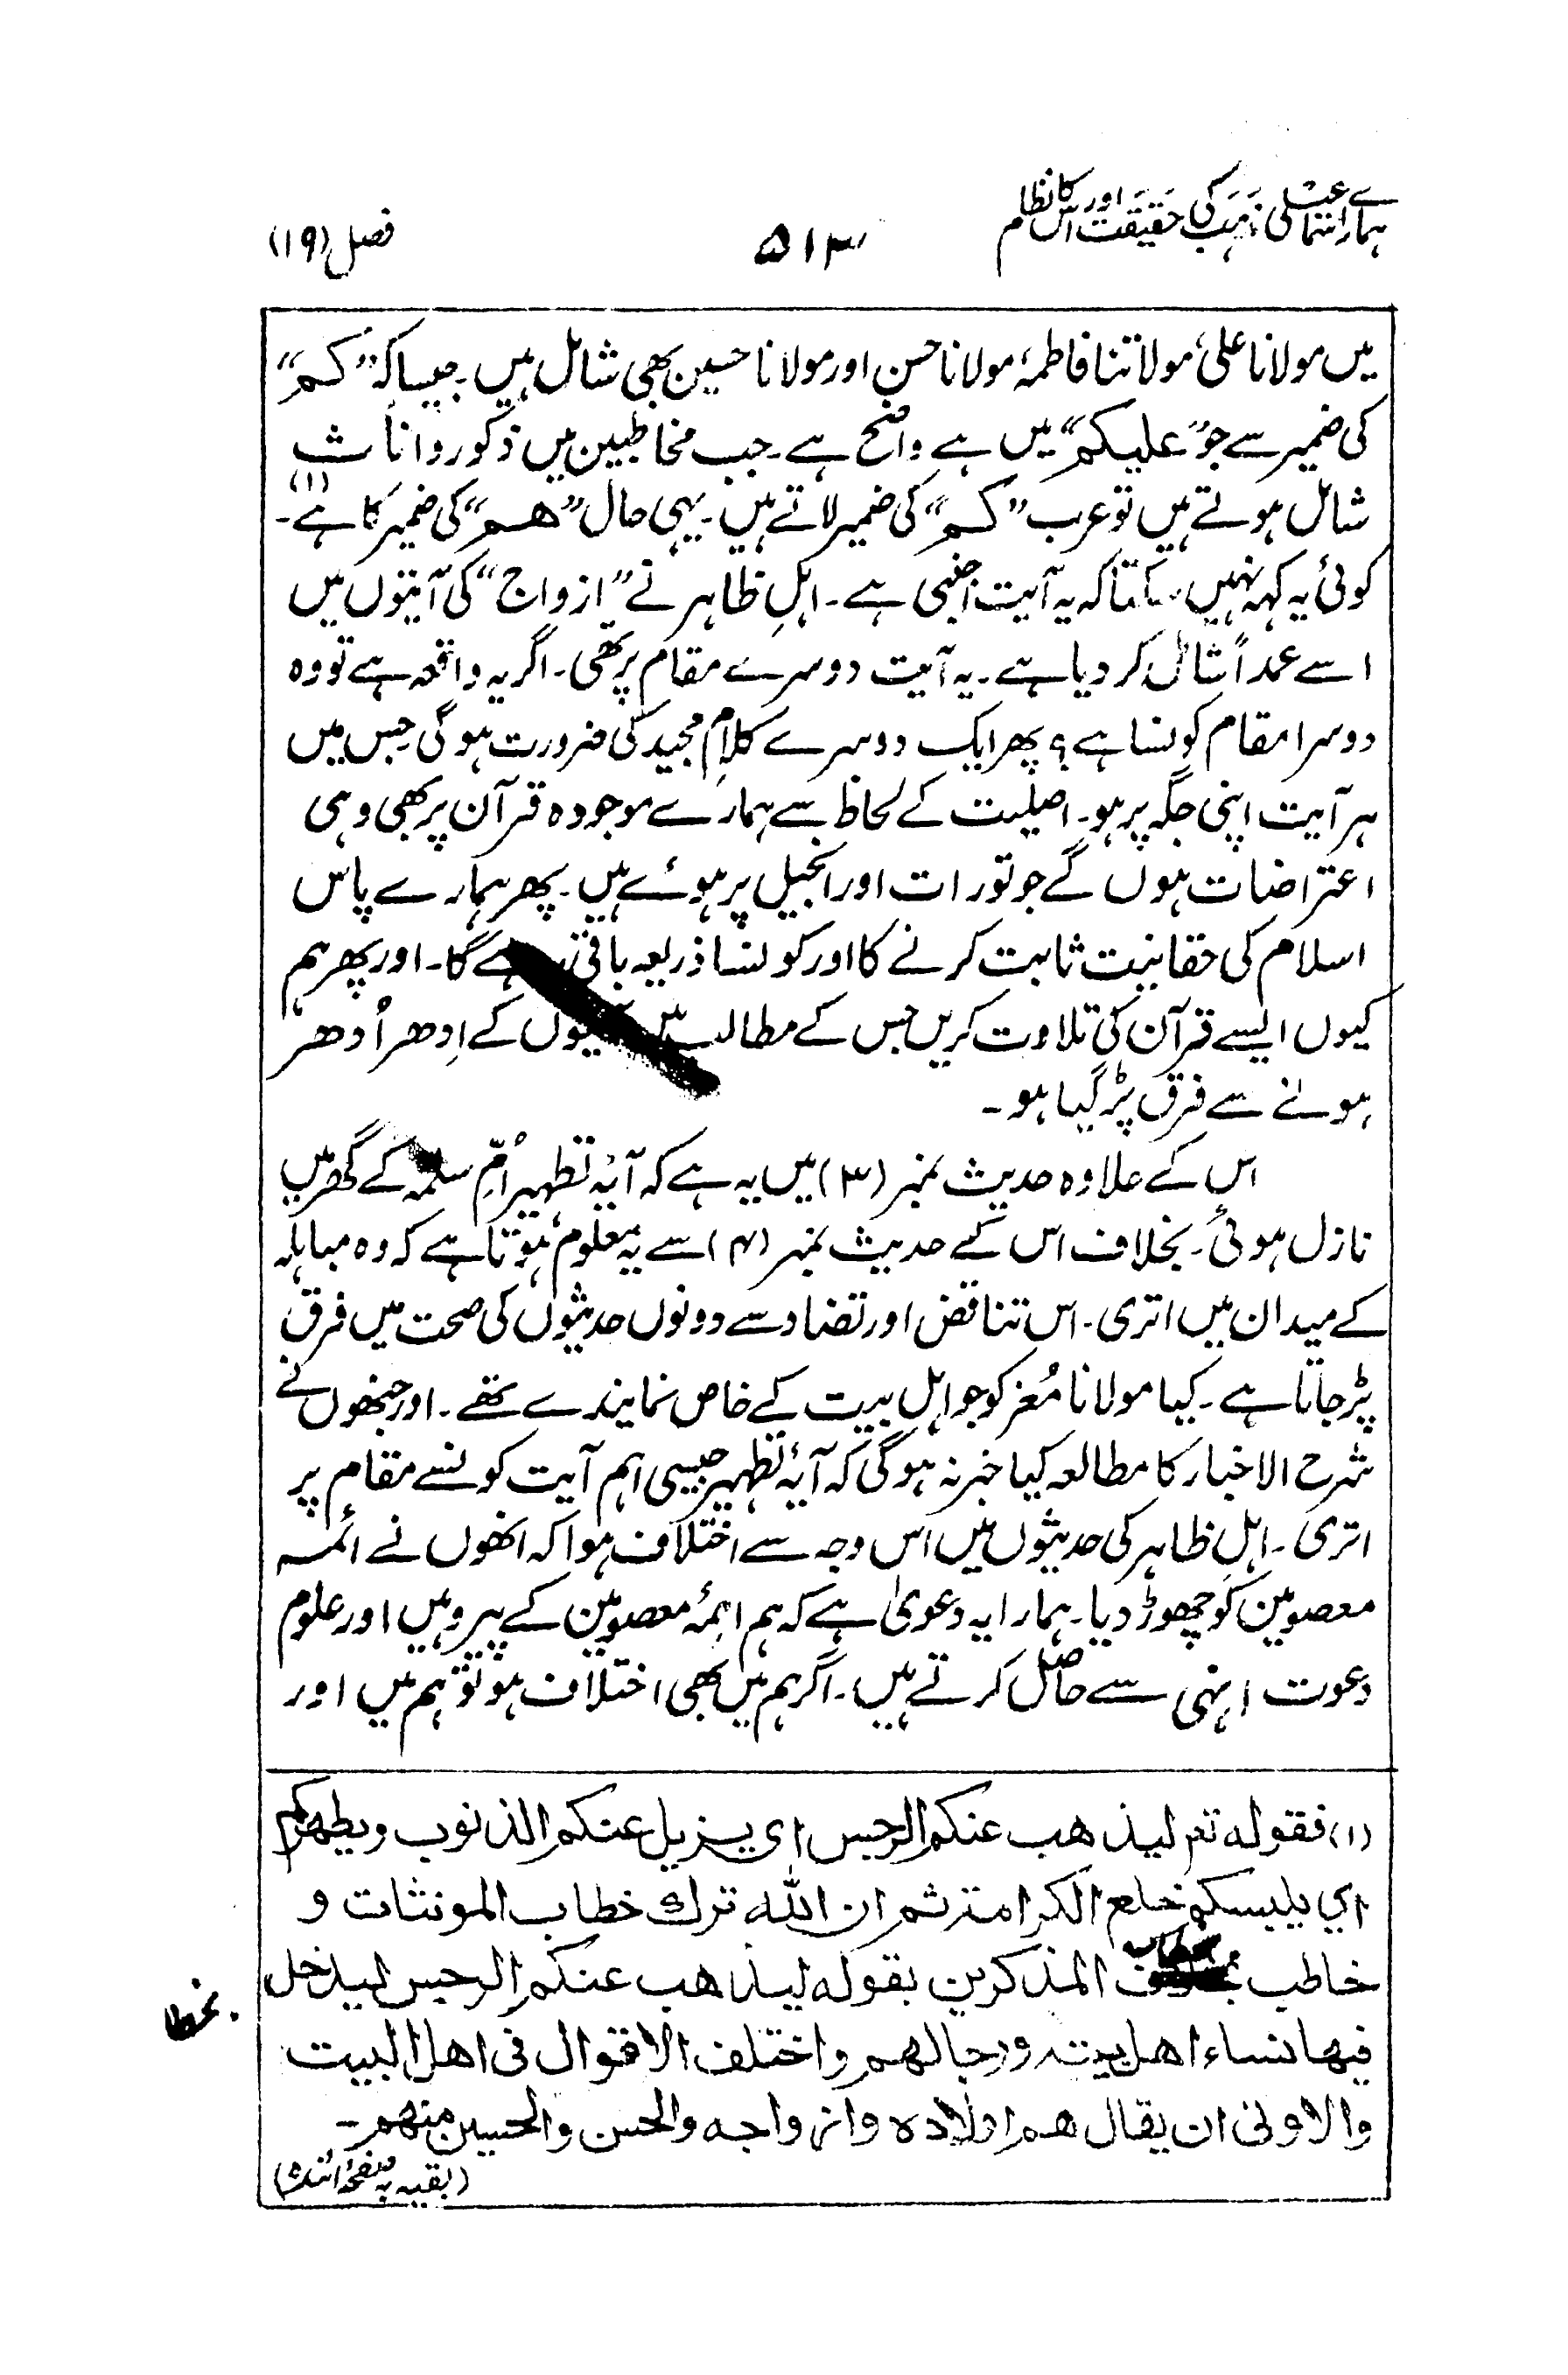 ہمارے اسماعیلی مذہب کی حقیقت اور اس کا نظام
۵۱۳
فصل (۱۹)
میں مولانا علیؑ مولاتنا فاطمہؑ مولانا حسن اور مولانا حسین بھی شامل ہیں۔ جیسا کہ ”کم“
کی ضمیر سے جو ”علیکم“ میں ہے واضح ہے۔ جب مخاطبین میں ذکور و اناث
شامل ہوتے ہیں تو عرب ”کم“ کی ضمیر لاتے ہیں۔ یہی حال ”ھم“ کی ضمیر کا ہے۔ (۱)
کوئی یہ کہہ نہیں سکتا کہ یہ آیت اجنبی ہے۔ اہلِ ظاہر نے ”ازواج“ کی آیتوں میں
اسے عمداً شامل کر دیا ہے۔ یہ آیت دوسرے مقام پر تھی۔ اگر یہ واقعہ ہے تو وہ
دوسرا مقام کونسا ہے؟ پھر ایک دوسرے کلامِ مجید کی ضرورت ہوگی جس میں
ہر آیت اپنی جگہ پر ہو۔ اصلیت کے لحاظ سے ہمارے موجودہ قرآن پر بھی وہی
اعتراضات ہوں گے جو تورات اور انجیل پر ہوئے ہیں۔ پھر ہمارے پاس
اسلام کی حقانیت ثابت کرنے کا اور کونسا ذریعہ باقی رہے گا۔ اور پھر ہم
کیوں ایسے قرآن کی تلاوت کریں جس کے مطالب میں آیتوں کے اِدھر اُدھر
ہونے سے فرق پڑ گیا ہو۔
اس کے علاوہ حدیث نمبر (۳) میں یہ ہے کہ آیۂ تطہیر اُمِّ سلمہ کے گھر میں
نازل ہوئی۔ بخلاف اس کے حدیث نمبر (۴) سے یہ معلوم ہوتا ہے کہ وہ مباہلہ
کے میدان میں اتری۔ اس تناقض اور تضاد سے دونوں حدیثوں کی صحت میں فرق
پڑ جاتا ہے۔ کیا مولانا مُعز کو جو اہلِ بیت کے خاص نمایندے تھے۔ اور جنھوں نے
شرح الاخبار کا مطالعہ کیا خبر نہ ہوگی کہ آیۂ تطہیر جیسی اہم آیت کونسے مقام پر
اتری۔ اہلِ ظاہر کی حدیثوں میں اس وجہ سے اختلاف ہوا کہ انھوں نے ائمہ
معصومین کو چھوڑ دیا۔ ہمارا یہ دعویٰ ہے کہ ہم ائمۂ معصومین کے پیرو ہیں اور علوم
دعوت انہی سے حاصل کرتے ہیں۔ اگر ہم میں بھی اختلاف ہو تو ہم میں اور
(۱) فقوله تع لیذهب عنکم الرجس ای یزیل عنکم الذنوب ویطهرکم
ای یلبسکم خلع الکرامة ثم ان الله ترك خطاب المونثات و
خاطب بخطاب المذکرین بقوله لیذهب عنکم الرجس لیدخل
فیها نساء اهل بیته ورجالهم واختلف الاقوال فی اهل البیت
والاولی ان یقال هم اولاده وازواجه والحسن والحسین منهم۔
(بقیہ بہ صفحۂ آئندہ)
بخطا